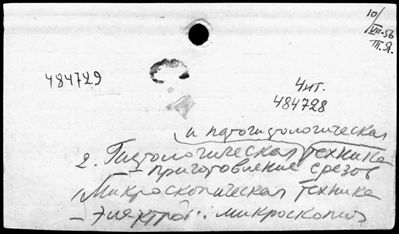 10/
VIII-56
Т.Я.
484729
Чит.
484728
и патогистологическая
2. Гистологическая техника
– приготовление срезов
1 Микроскопическая техника
– Электрон. микроскопия